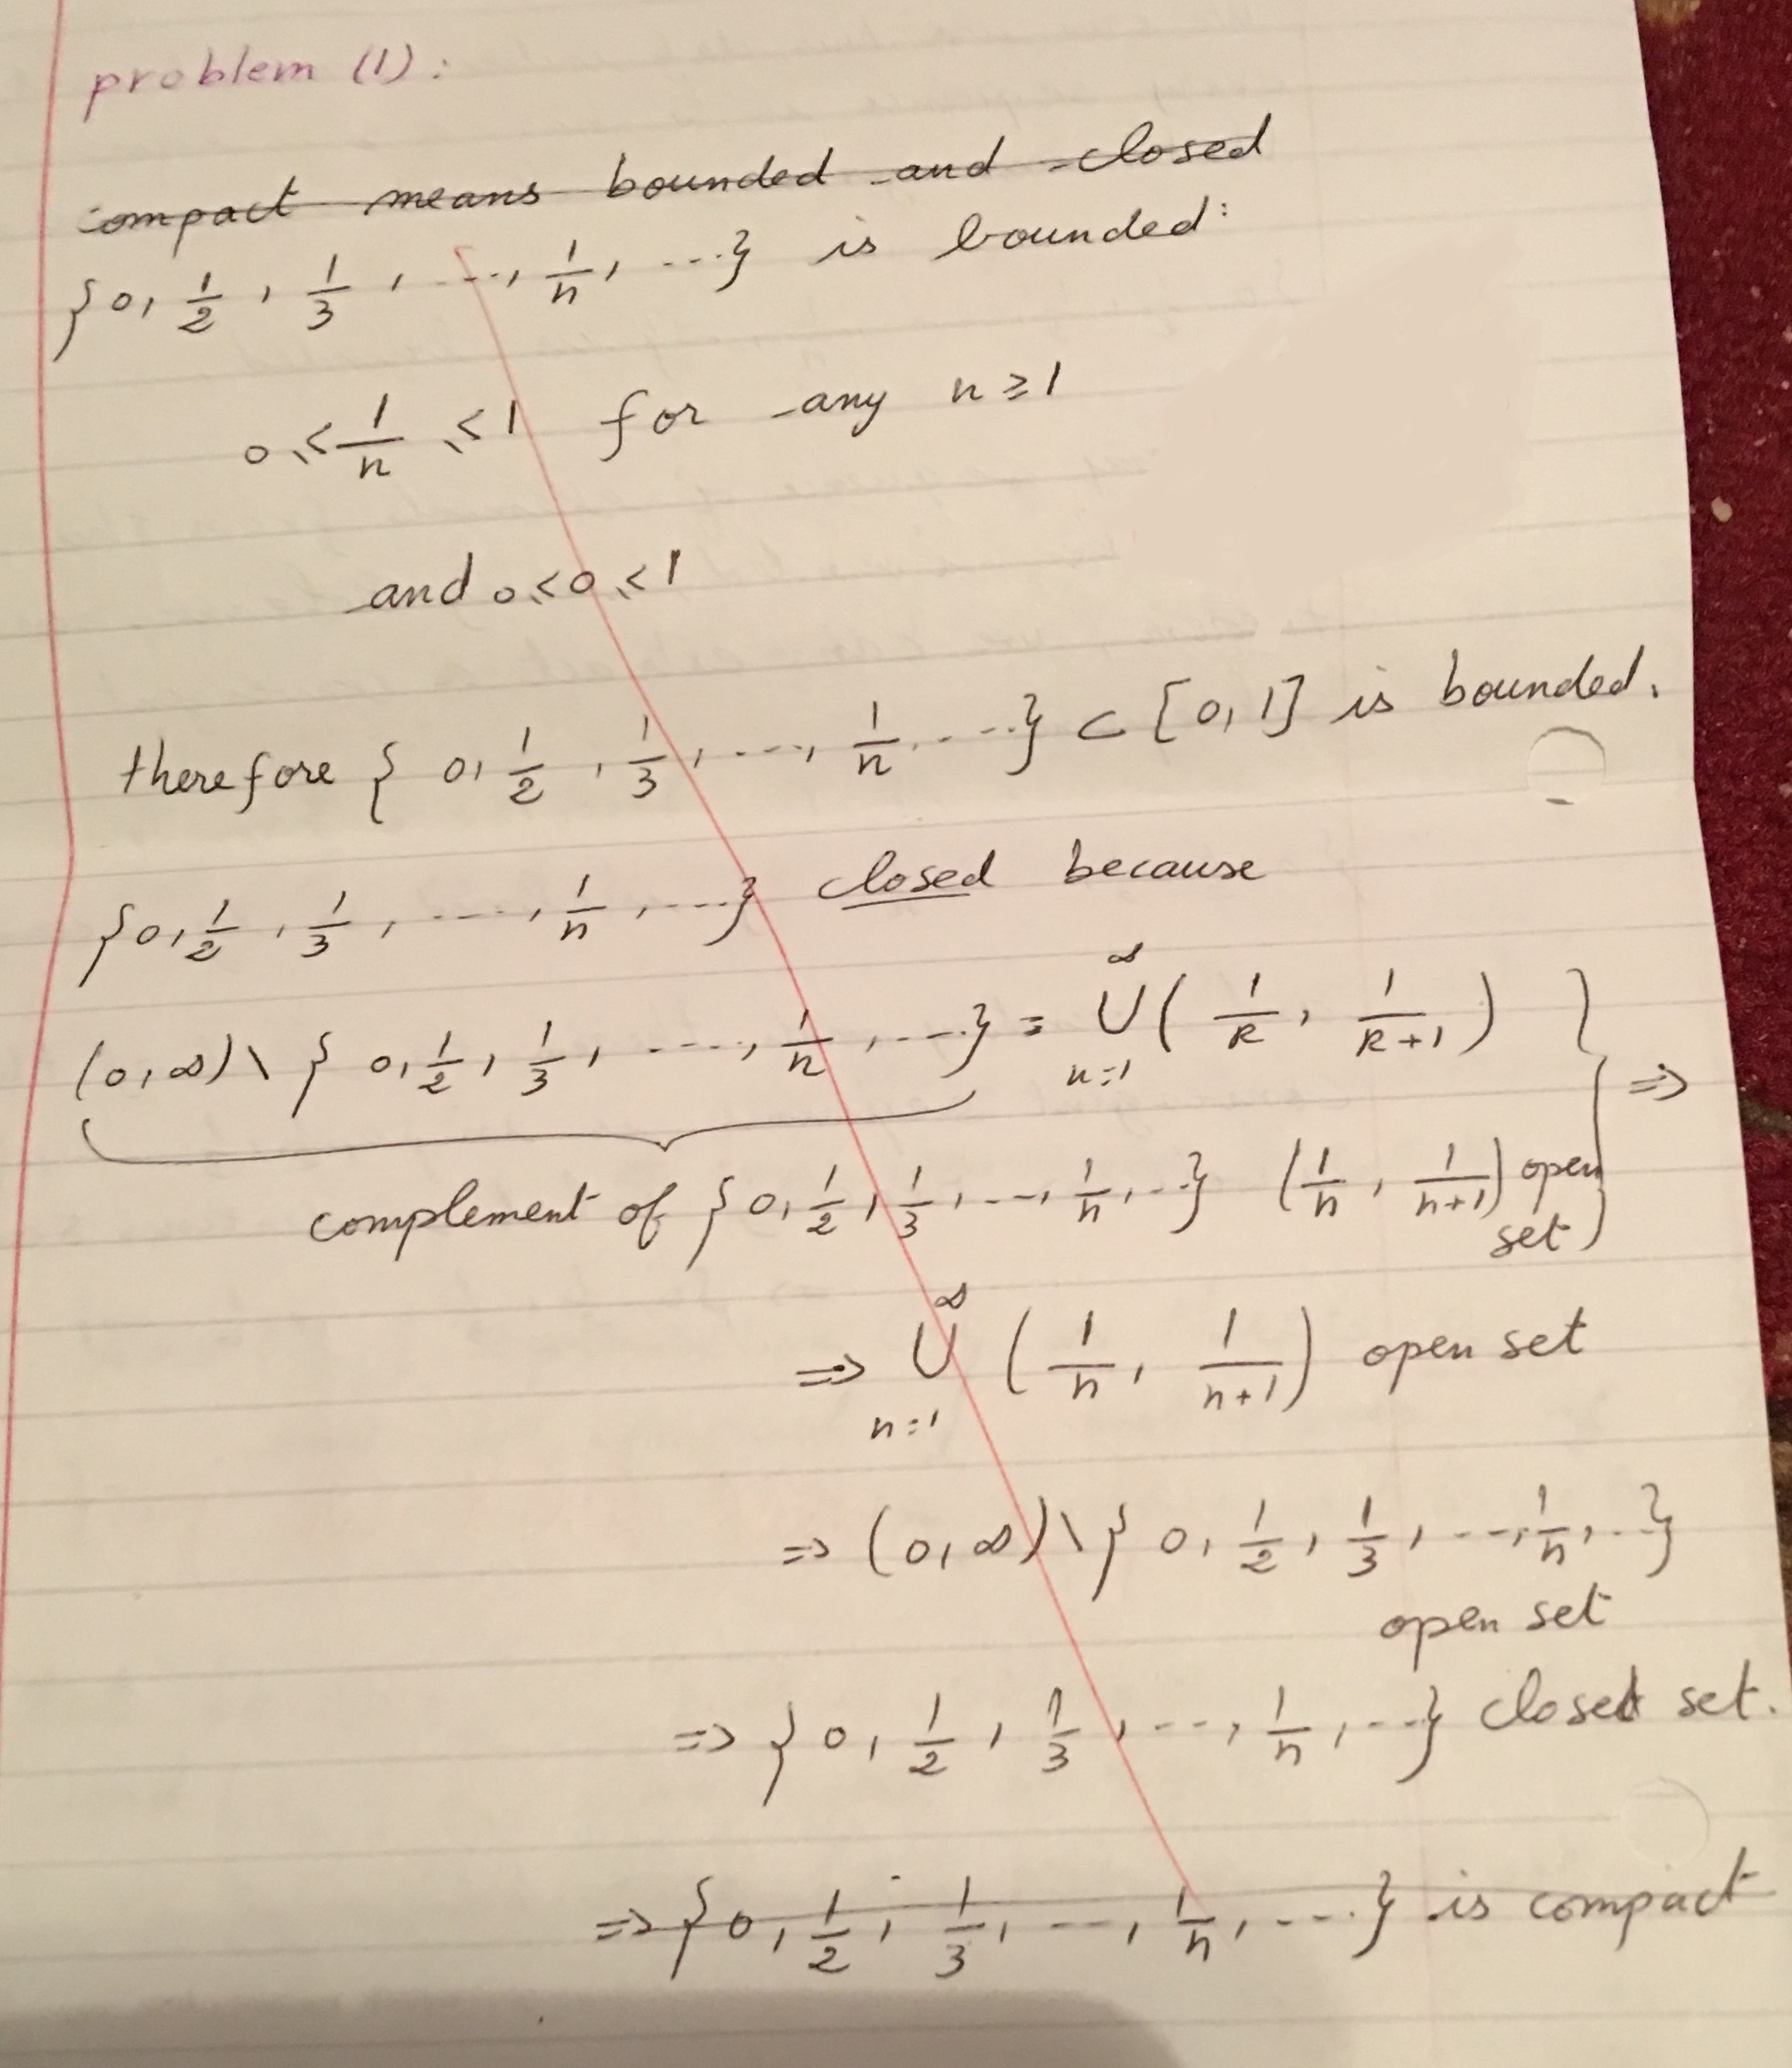 problem (1):
compact means bounded and closed
{0, 1/2, 1/3, ----, 1/n, ---} is bounded:
0 ≤ 1/n ≤ 1 for any n ≥ 1
and 0 ≤ 0 ≤ 1
therefore { 0, 1/2, 1/3, ---, 1/n, ---} ⊂ [0,1] is bounded.
{0, 1/2, 1/3, ----, 1/n, ---} closed because
(0,∞) \ { 0, 1/2, 1/3, ----, 1/n, ---} = ∞ ∪ n=1 ( 1/k, 1/k+1 ) } =>
complement of {0, 1/2, 1/3, ---, 1/n, --} (1/n, 1/n+1) open
set
=> ∞ ∪ n=1 ( 1/n, 1/n+1 ) open set
=> (0,∞) \ { 0, 1/2, 1/3, ---, 1/n, --}
open set
=> { 0, 1/2, 1/3, ---, 1/n, ---} closed set.
=> {0, 1/2, 1/3, ---, 1/n, ---} is compact